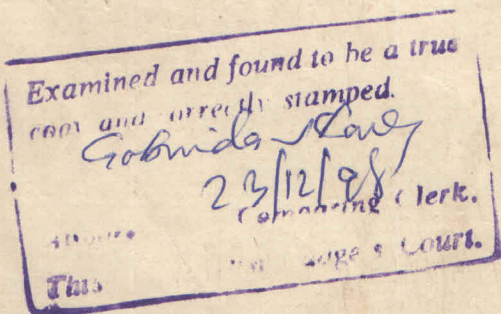 Examined and found to be a true
copy and correctly stamped.
23/12/98
Comparing Clerk.
This Judge's Court.